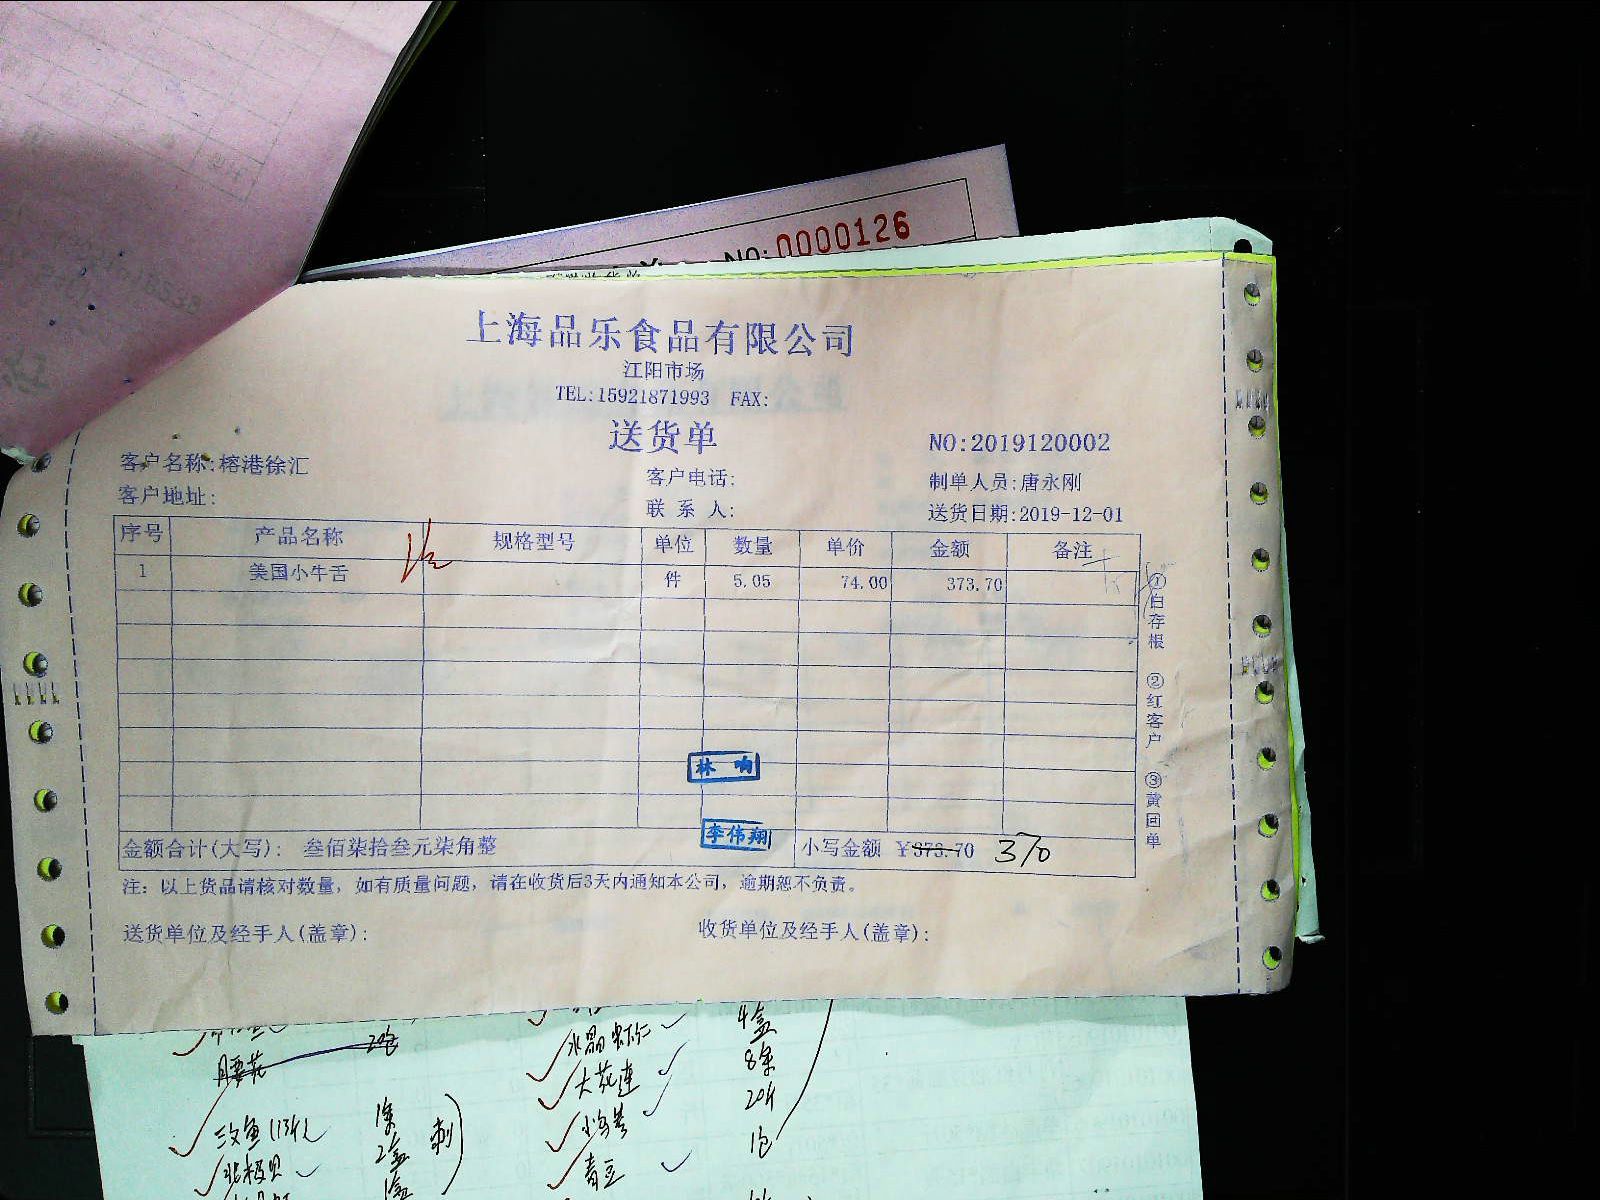 NO:0000126
上海品乐食品有限公司
江阳市场
TEL:15921871993 FAX:
送货单
NO:2019120002
客户名称:榕港徐汇
客户电话:
制单人员:唐永刚
客户地址:
联 系 人:
送货日期:2019-12-01
序号 产品名称 规格型号 单位 数量 单价 金额 备注
1 美国小牛舌 件 5.05 74.00 373.70
①白存根 ②红客户 ③黄回单
林 响
李伟翔
金额合计(大写): 叁佰柒拾叁元柒角整 小写金额 ¥373.70 370
注: 以上货品请核对数量, 如有质量问题, 请在收货后3天内通知本公司, 逾期恕不负责。
送货单位及经手人(盖章): 收货单位及经手人(盖章):
水晶虾仁 4盒
月腰花
大花连 8条
三文鱼 1条 刺
北极贝 2盒
青豆 1包
1盒